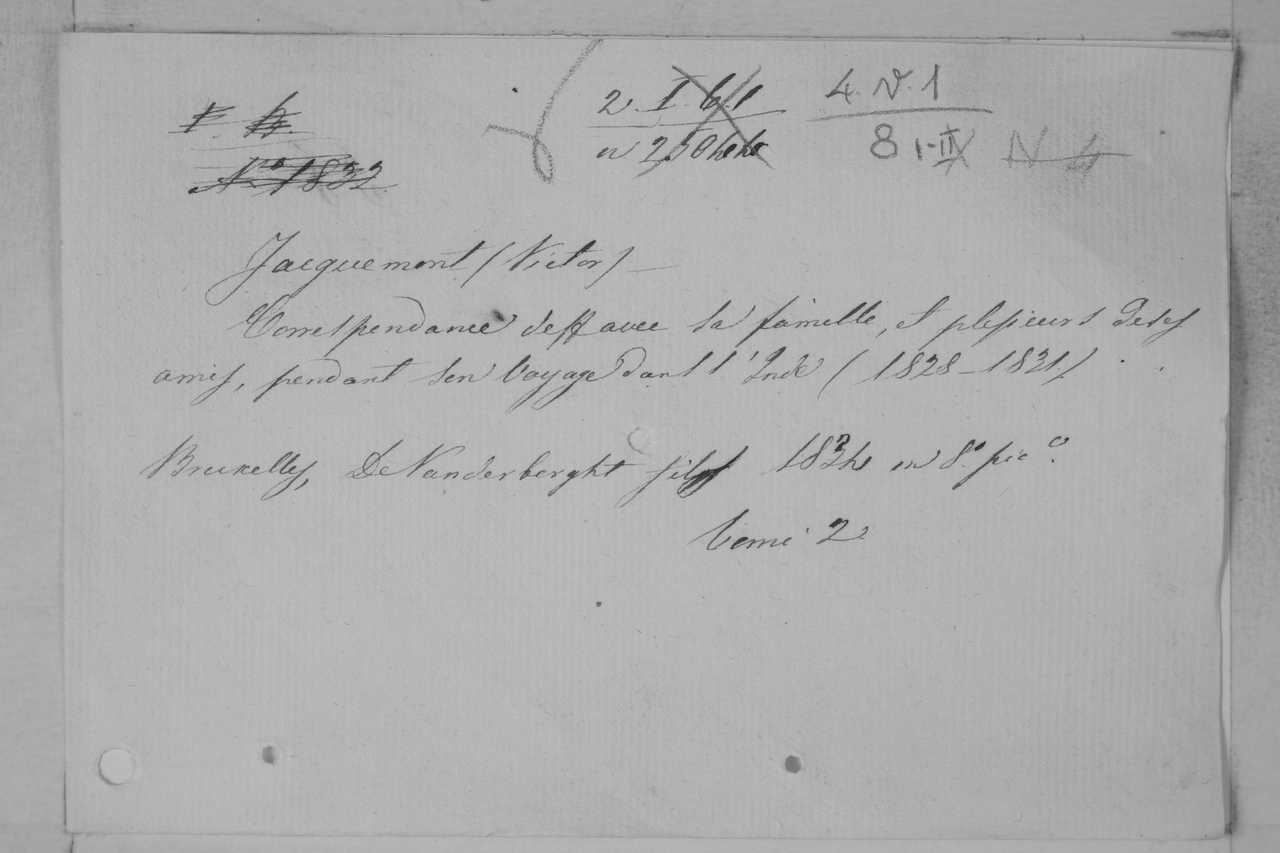 N.º 1832
4. V. 1
8 I-II
N 4
Jacquemont (Victor)
Correspondance avec sa famille, et plesieurs de ses
amis, pendant son Voyage dans l'Inde (1828-1831)
Bruxelles, De Vanderberght fils 1834 in 8.º pic.º
Tome 2